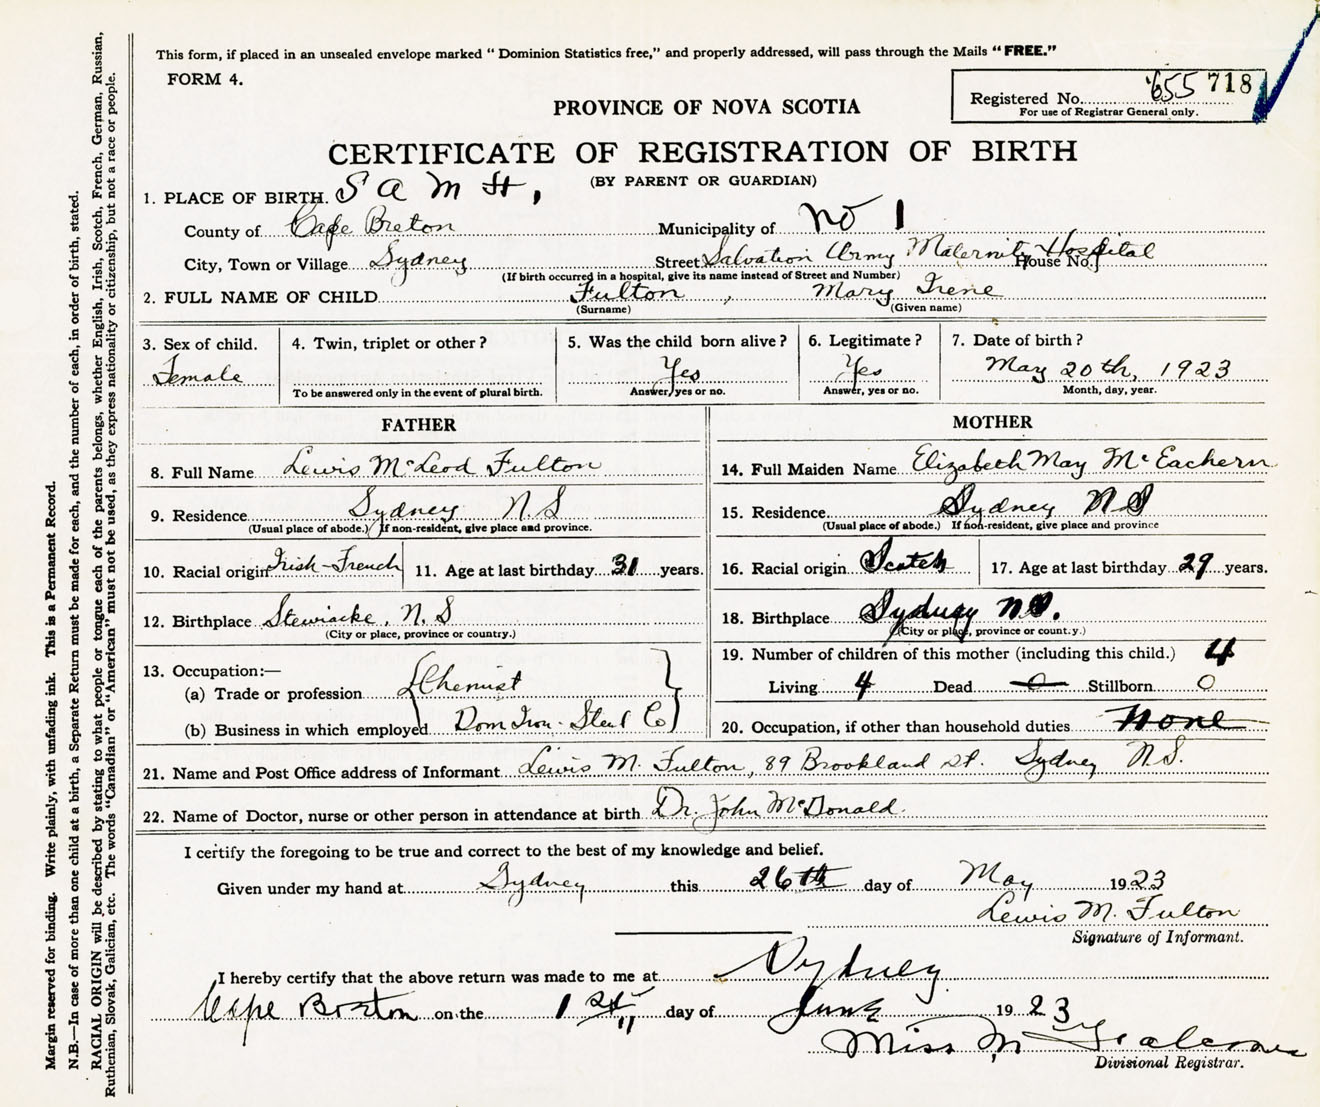 This form, if placed in an unsealed envelope marked “ Dominion Statistics free,” and properly addressed, will pass through the Mails “FREE.”
FORM 4.
Registered No. 655 718
For use of Registrar General only.
PROVINCE OF NOVA SCOTIA
CERTIFICATE OF REGISTRATION OF BIRTH
(BY PARENT OR GUARDIAN)
1. PLACE OF BIRTH. S A M H,
County of Cape Breton Municipality of No 1
City, Town or Village Sydney Street Salvation Army Maternity Hospital House No.
(If birth occurred in a hospital, give its name instead of Street and Number)
2. FULL NAME OF CHILD Fulton , Mary Irene
(Surname) (Given name)
3. Sex of child. Female
4. Twin, triplet or other ?
To be answered only in the event of plural birth.
5. Was the child born alive ? Yes
Answer, yes or no.
6. Legitimate ? Yes
Answer, yes or no.
7. Date of birth ? May 20th, 1923
Month, day, year.
FATHER
8. Full Name Lewis McLeod Fulton
9. Residence Sydney N.S
(Usual place of abode.) If non-resident, give place and province.
10. Racial origin Irish-French 11. Age at last birthday 31 years.
12. Birthplace Stewiacke, N.S
(City or place, province or country.)
13. Occupation:—
(a) Trade or profession Chemist
(b) Business in which employed Dom Iron - Steel Co
MOTHER
14. Full Maiden Name Elizabeth May McEachern
15. Residence Sydney NS
(Usual place of abode.) If non-resident, give place and province
16. Racial origin Scotch 17. Age at last birthday 29 years.
18. Birthplace Sydney N.S.
(City or place, province or count.y.)
19. Number of children of this mother (including this child.) 4
Living 4 Dead 0 Stillborn 0
20. Occupation, if other than household duties None
21. Name and Post Office address of Informant Lewis M. Fulton, 89 Brookland St. Sydney N.S.
22. Name of Doctor, nurse or other person in attendance at birth Dr. John McDonald.
I certify the foregoing to be true and correct to the best of my knowledge and belief.
Given under my hand at Sydney this 26th day of May 1923
Lewis M. Fulton
Signature of Informant.
I hereby certify that the above return was made to me at Sydney
Cape Breton on the 1st day of June 1923
Miss M
Divisional Registrar.
Margin reserved for binding. Write plainly, with unfading ink. This is a Permanent Record.
N.B.—In case of more than one child at a birth, a Separate Return must be made for each, and the number of each, in order of birth, stated.
RACIAL ORIGIN will be described by stating to what people or tongue each of the parents belongs, whether English, Irish, Scotch, French, German, Russian,
Ruthenian, Slovak, Galician, etc. The words “Canadian” or “American” must not be used, as they express nationality or citizenship, but not a race or people.